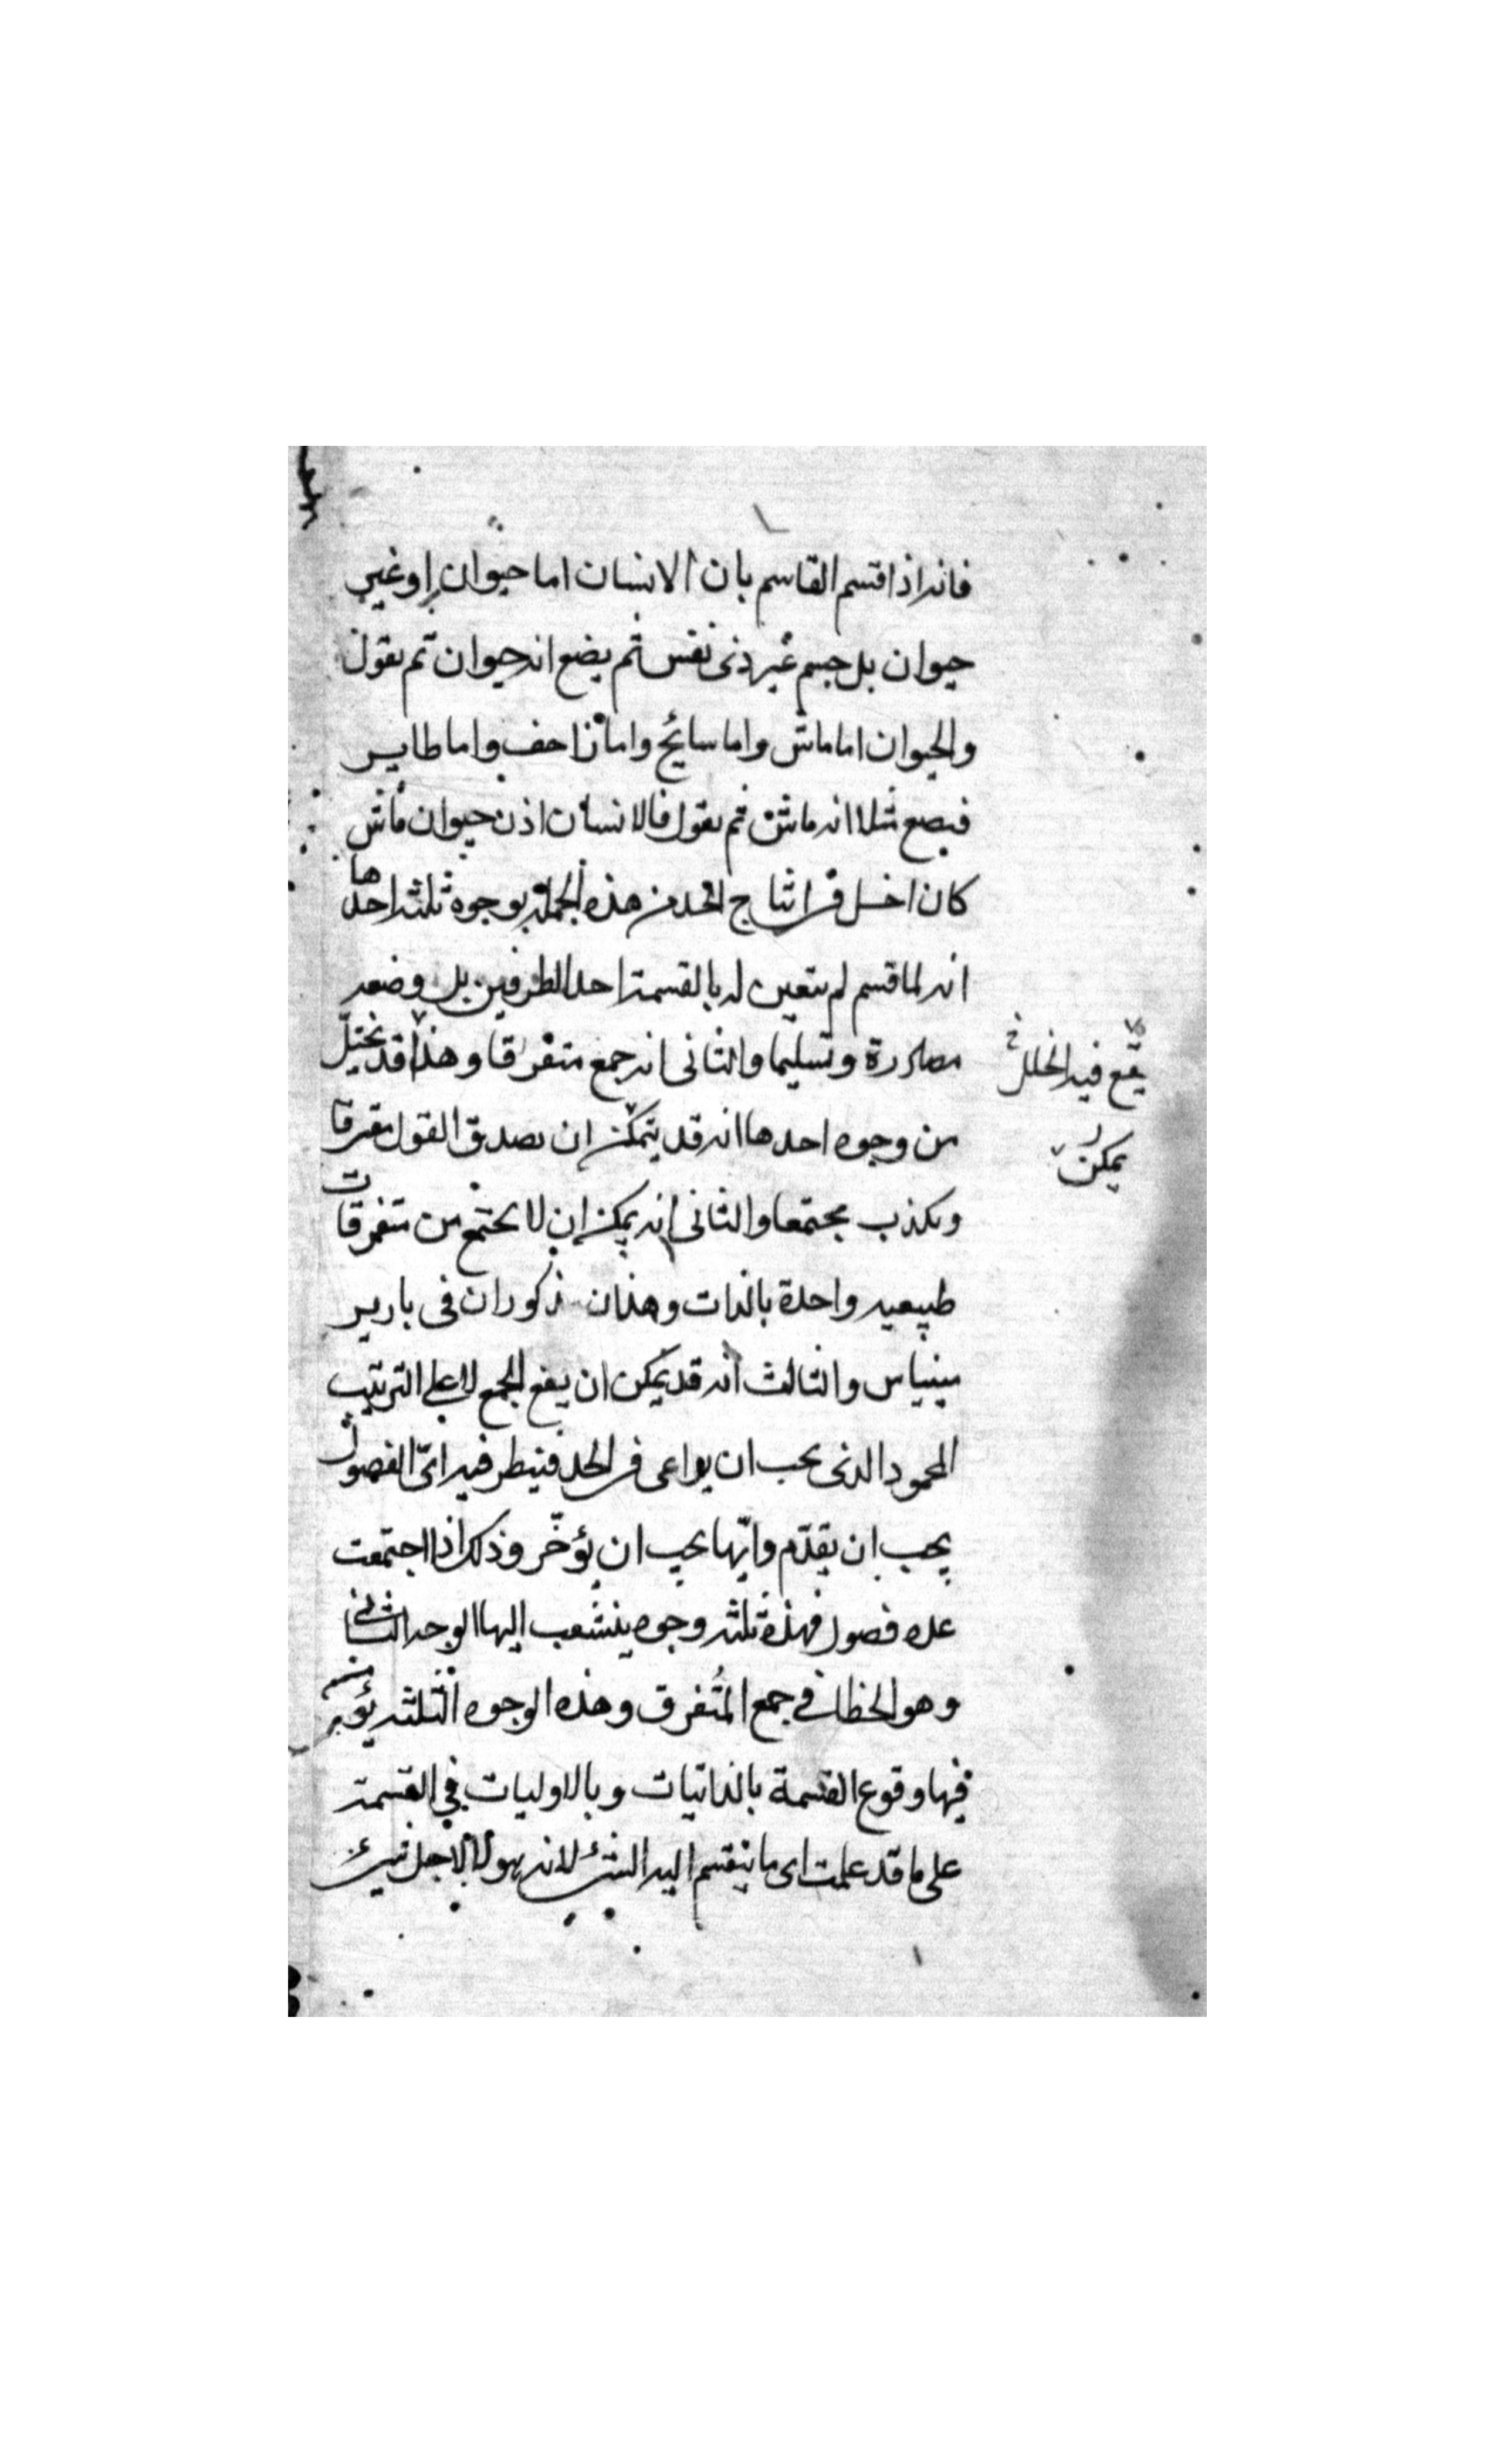 فانه اذا قسم القاسم بان الانسان اما حيوان او غير
حيوان بل جسم غير ذى نفس ثم يضع انه حيوان ثم يقول
والحيوان اما ماش واما سابح واما زاحف واما طاير
فيضع مثلا انه ماش ثم يقول فالانسان اذن حيوان ماش
كان اخل فى انتاج الحد من هذه الجملة بوجوه ثلثه احدها
انه لما قسم لم يتعين له بالقسمة احد الطرفين بل وضعه
مصادرة وتسليما والثانى انه جمع متفرقا وهذا قد يختل
يقع فيه الخلل
من وجوه احدها انه قد يتمكن ان يصدق القول مفترقا
يمكن
ويكذب مجتمعا والثانى انه يمكن ان لا يجتمع من متفرقات
طبيعيه واحدة بالذات وهذان مذكوران فى بارير
مينياس والثالث انه قد يمكن ان يقع الجمع لا على الترتيب
المحمود الذى يجب ان يراعى فى الحد فينظر فيه اىّ الفصول
يجب ان يقدّم وايّها يجب ان يؤخّر وذلك اذا اجتمعت
عده فصول فهذه ثلثه وجوه ينشعب اليها الوجه الثانى
وهو الخطا فى جمع المتفرق وهذه الوجوه الثلثه يؤمن
فيها وقوع القسمة بالذاتيات وبالاوليات فى القسمة
على ما قد علمت اى ما ينقسم اليه الشئ لانه هو لا لاجل شئ